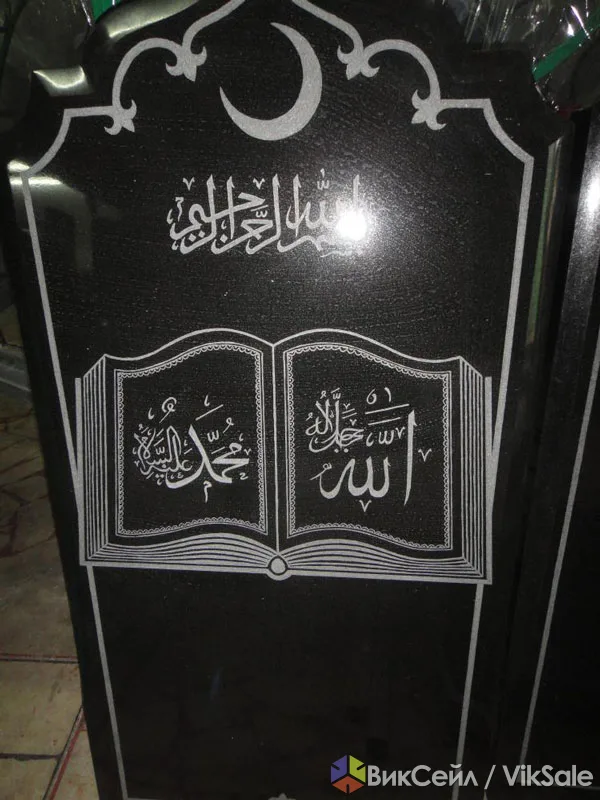 بسم الله الرحمن الرحيم
الله جل جلاله
محمد عليه السلام
ВикСейл / VikSale